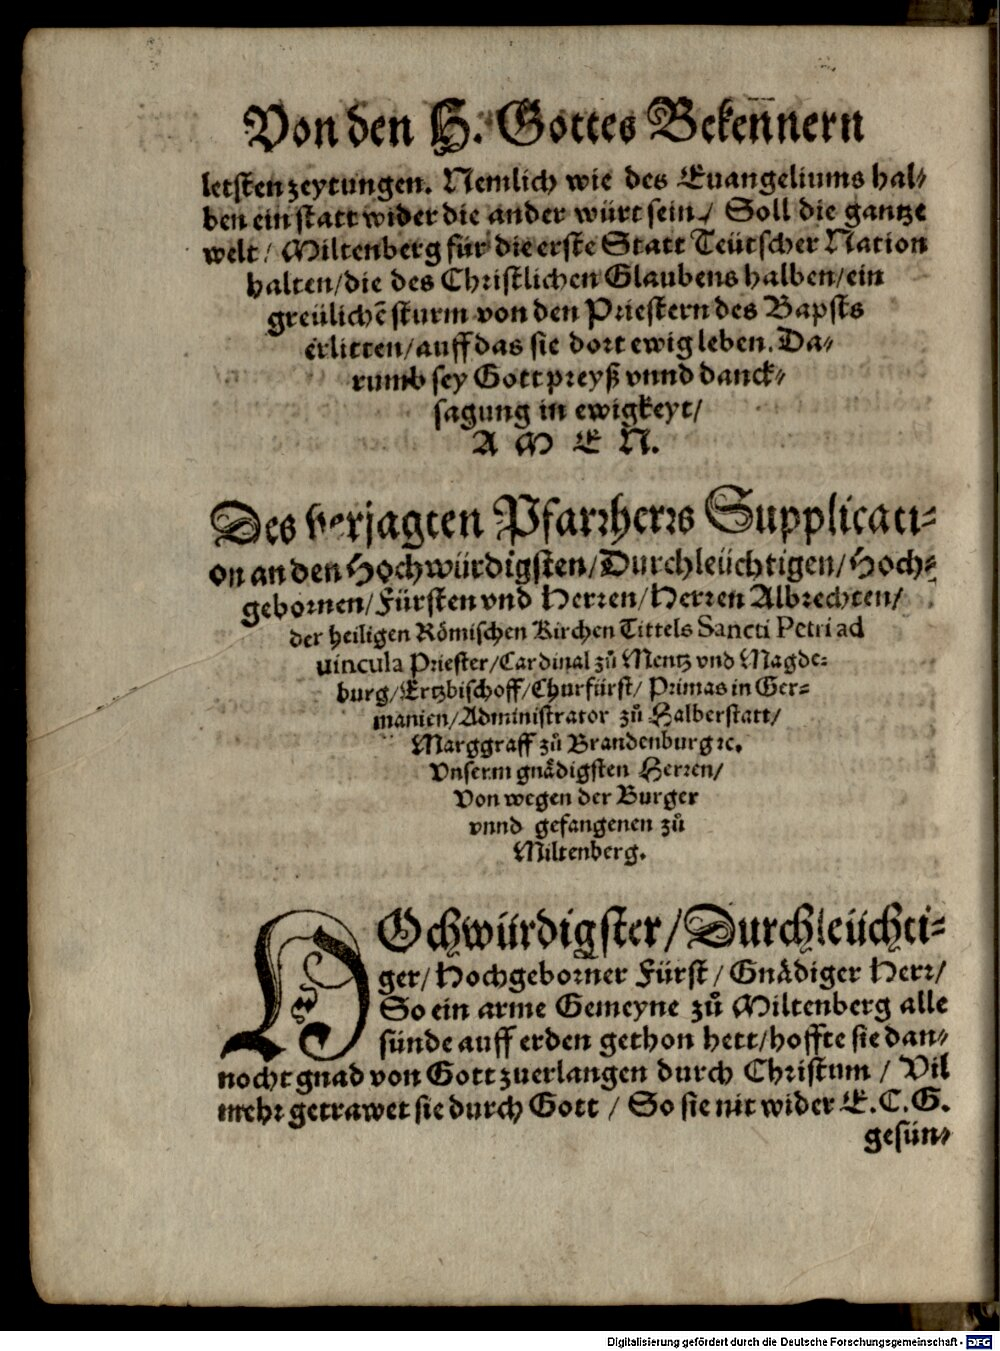 Von den H. Gottes Bekeñnern
letsten zeytungen. Nemlich wie des Euangeliums hal-
ben ein statt wider die ander würt sein / Soll die gantze
welt / Miltenberg für die erste Statt Teütscher Nation
halten / die des Christlichen Glaubens halben / ein
greülichẽ sturm von den Priestern des Bapsts
erlitten / auff das sie dort ewig leben. Da-
rumb sey Gott preyß vnnd danck-
sagung in ewigkeyt /
A M E N.
Des verjagten Pfarrherrs Supplicati-
on an den Hochwürdigsten / Durchleüchtigen / Hoch-
gebornen / Fürsten vnd Herren / Herren Albrechten /
der heiligen Römischen Kirchen Tittels Sancti Petri ad
uincula Priester / Cardinal zů Mentz vnd Magde-
burg / Ertzbischoff / Churfürst / Primas in Ger-
manien / Administrator zů Halberstatt /
Marggraff zů Brandenburg ꝛc.
Vnserm gnädigsten Herren /
Von wegen der Burger
vnnd gefangenen zů
Miltenberg.
HOchwürdigster / Durchleüchti-
ger / Hochgeborner Fürst / Gnädiger Herr /
So ein arme Gemeyne zů Miltenberg alle
sünde auff erden gethon hett / hoffte sie dan-
nocht gnad von Gott zuerlangen durch Christum / Vil
mehr getrawet sie durch Gott / So sie nit wider E. C. G.
gesün-
Digitalisierung gefördert durch die Deutsche Forschungsgemeinschaft - DFG